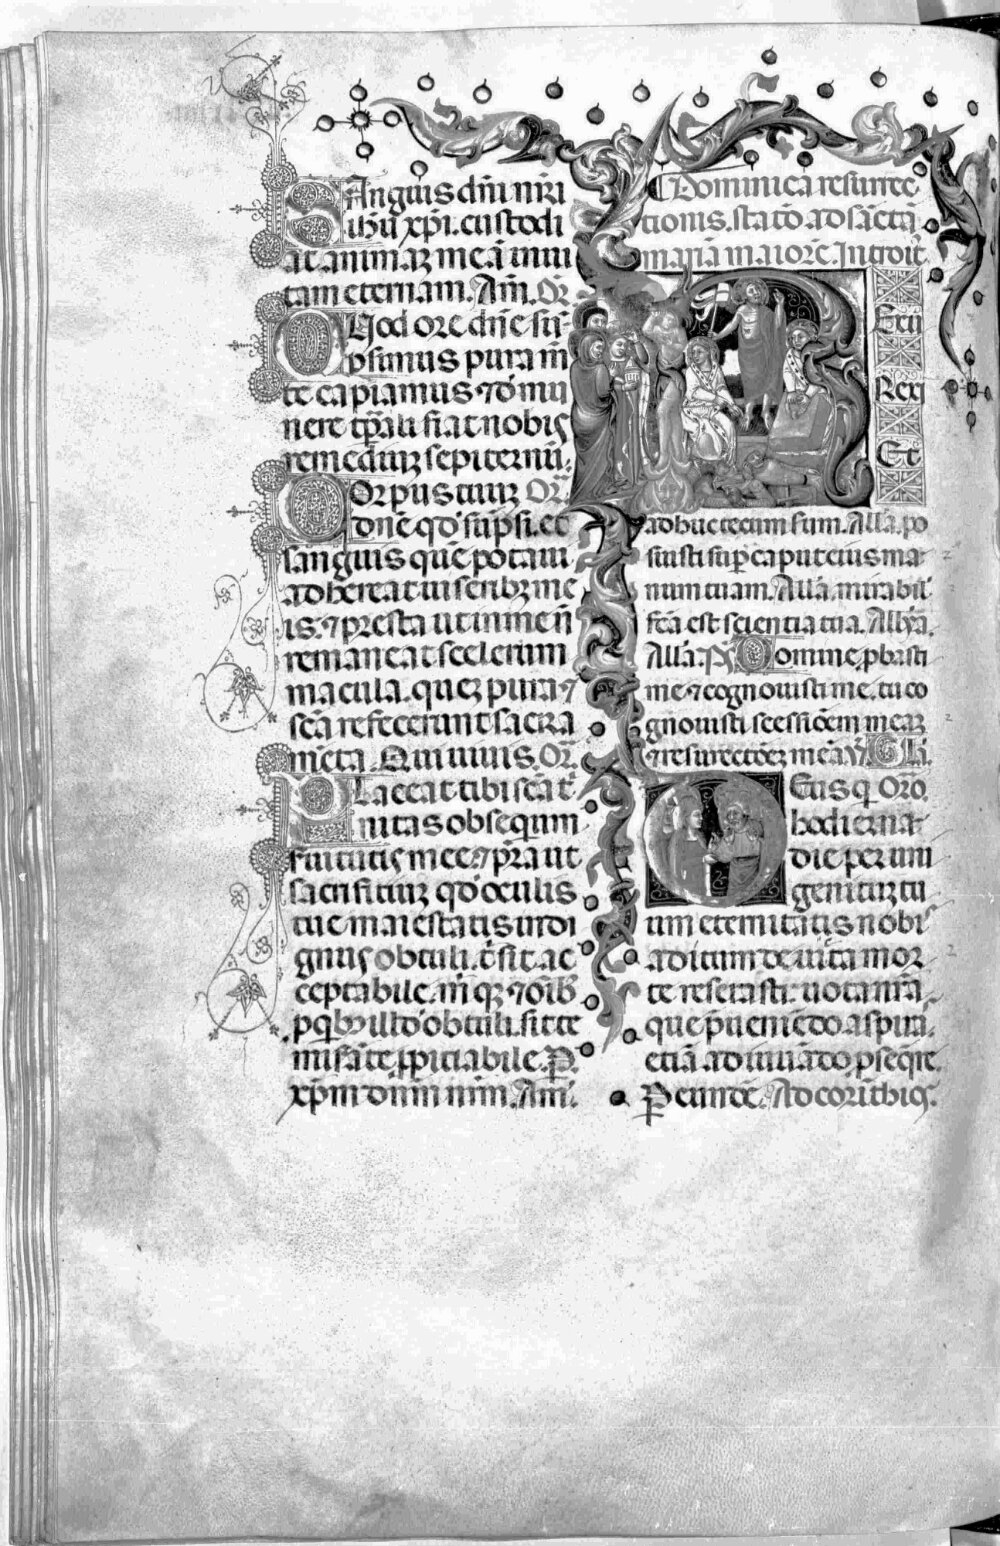 Sanguis dñi nr̃i
ihũ xp̃i. custodi
at animaꝫ meã in ui
tam eternam. Am̃. Or̃.
Quod ore dñe sũ
psimus pura m̃
te capiamus ⁊ d̃ mu
nere tp̃ali fiat nobis
remediuꝫ sepiternũ.
Corpus tuuꝫ Or̃.
dñe qđ sũpsi. et
sanguis quẽ potaui
adhereat uiscribꝫ me
is. ⁊ presta ut in me ñ
remaneat scelerum
macula. queꝫ pura ⁊
sc̃a refecerunt sacra
m̃eta. Qui uiuis. Or̃.
Placeat tibi sc̃a t̾
nitas obsequium
suitutis mee. ⁊ p̃ra ut
sacrifitiuꝫ qđ oculis
tue maiestatis indi
gnus obtuli. t̾ sit ac
ceptabile. m̃ qꝫ ⁊ oĩbꝫ
p̃ qͥbꝫ illđ obtuli. sit te
misãte, ꝓpitiabile. P.
xp̃m dnm̃ nr̃m. Am̃.
Dominica resurrec
tionis. statõ ad sãctã
mariã maiorẽ. Introit̾.
Resu
Rexi
Et
adhuc tecum sum. All̃a. po
suisti sup̃ caput eius ma
num tuam. All̃a. mirabil̾
fc̃a est scientia tua. All̃a.
All̃a. p̃s. Domine, ꝓbasti
me, ⁊ cognouisti me. tu co
gnouisti sessiõem meaꝫ
⁊ resurectõeꝫ meã. ℣. Gl̃a.
Deus q̃ Or̃o.
hodierna
die per uni
genituꝫ tu
um eternitatis nobis
aditum deuicta mor
te reserasti. uota nr̃a.
que p̃ueniẽdo aspiras.
etiã adiuuãdo, ꝓseq̃re.
P. eund̃e. Ad corinthios.